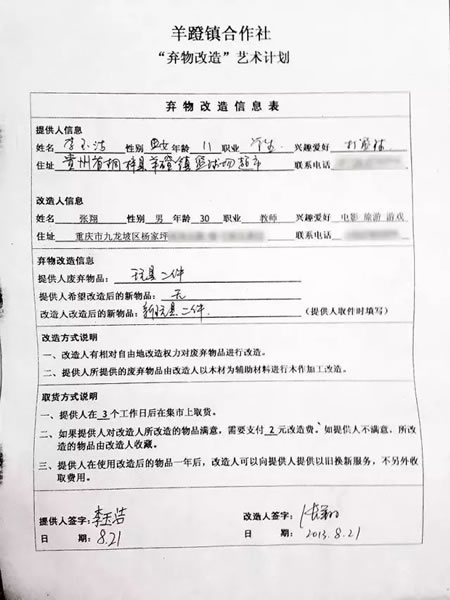 羊蹬镇合作社
“弃物改造”艺术计划
弃物改造信息表
提供人信息
姓名 李玉洁 性别 女 年龄 11 职业 学生 兴趣爱好 打篮球
住址 贵州省桐梓县羊蹬镇 超市 联系电话
改造人信息
姓名 张翔 性别 男 年龄 30 职业 教师 兴趣爱好 电影 旅游 游戏
住址 重庆市九龙坡区杨家坪 联系电话
弃物改造信息
提供人废弃物品： 玩具二件
提供人希望改造后的新物品： 无
改造人改造后的新物品： 新玩具二件. （提供人取件时填写）
改造方式说明
一、改造人有相对自由地改造权力对废弃物品进行改造。
二、提供人所提供的废弃物品由改造人以木材为辅助材料进行木作加工改造。
取货方式说明
一、提供人在 3 个工作日后在集市上取货。
二、如果提供人对改造人所改造的物品满意，需要支付 2 元改造费。如提供人不满意，所改
造的物品由改造人收藏。
三、提供人在使用改造后的物品一年后，改造人可以向提供人提供以旧换新服务，不另外收
取费用。
提供人签字： 李玉洁 改造人签字： 张翔
日 期： 8.21 日 期： 2013.8.21